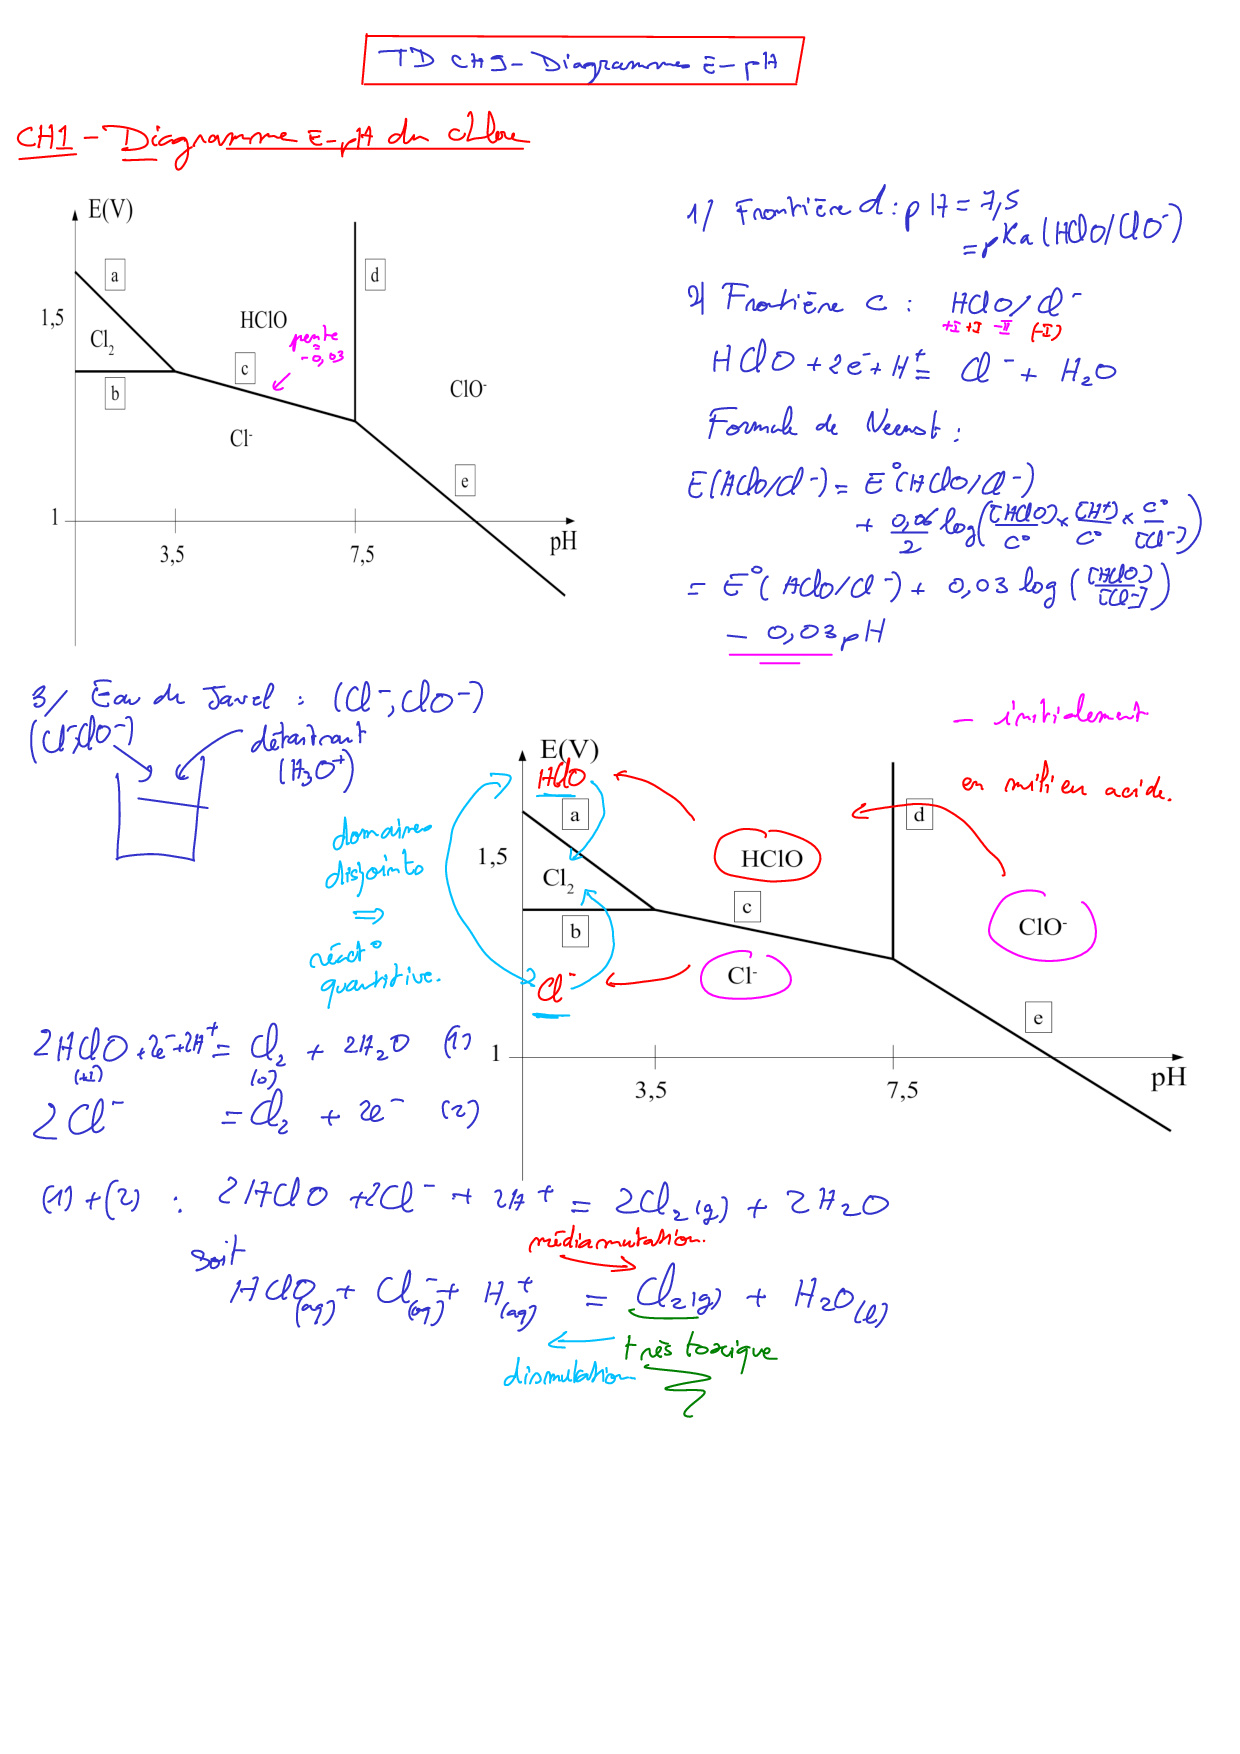 TD CH5 - Diagrammes E-pH
CH1 - Diagramme E-pH du chlore
E(V)
a
d
1,5
HClO
Cl2
pente
: -0,03
c
b
ClO-
Cl-
e
1
3,5
7,5
pH
1/ Frontière d : pH = 7,5
= pKa (HClO/ClO-)
2/ Frontière c : HClO/Cl-
+I +I -II (-I)
HClO + 2e- + H+ = Cl- + H2O
Formule de Nernst :
E(HClO/Cl-) = E°(HClO/Cl-)
+ 0,06/2 log([HClO]/C° × [H+]/C° × C°/[Cl-])
= E°(HClO/Cl-) + 0,03 log([HClO]/[Cl-])
- 0,03 pH
3/ Eau de Javel : (Cl-, ClO-)
(Cl-, ClO-)
détartrant
(H3O+)
- initialement
en milieu acide.
E(V)
HClO
a
d
domaines
disjoints
⇒
réact°
quantitive.
1,5
HClO
Cl2
c
b
ClO-
Cl-
2 Cl-
e
1
3,5
7,5
pH
2HClO + 2e- + 2H+ = Cl2 + 2H2O (1)
(+I) (0)
2Cl- = Cl2 + 2e- (2)
(1) + (2) : 2HClO + 2Cl- + 2H+ = 2Cl2(g) + 2H2O
soit
médiamutation.
HClO(aq) + Cl-(aq) + H+(aq) = Cl2(g) + H2O(l)
très toxique
dismutation